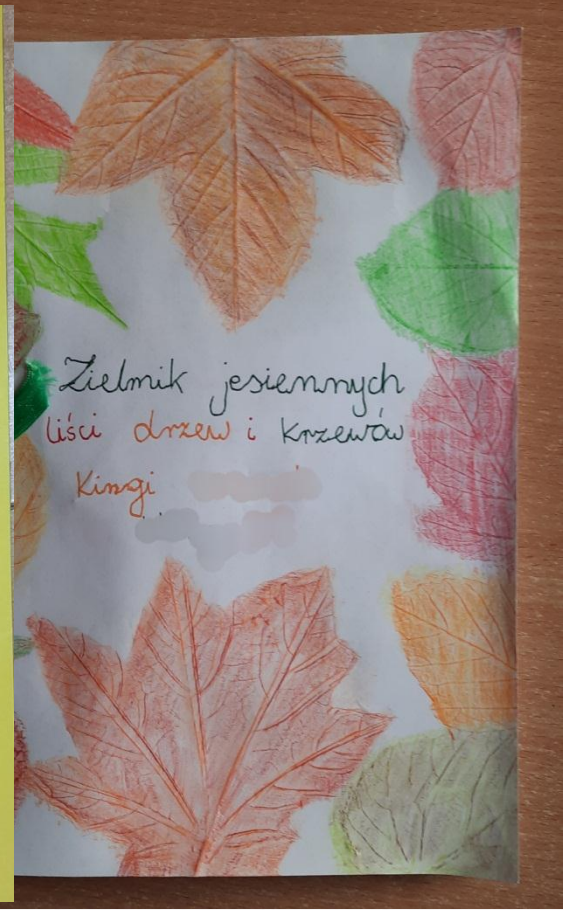 Zielnik jesiennych
liści drzew i krzewów
Kingi